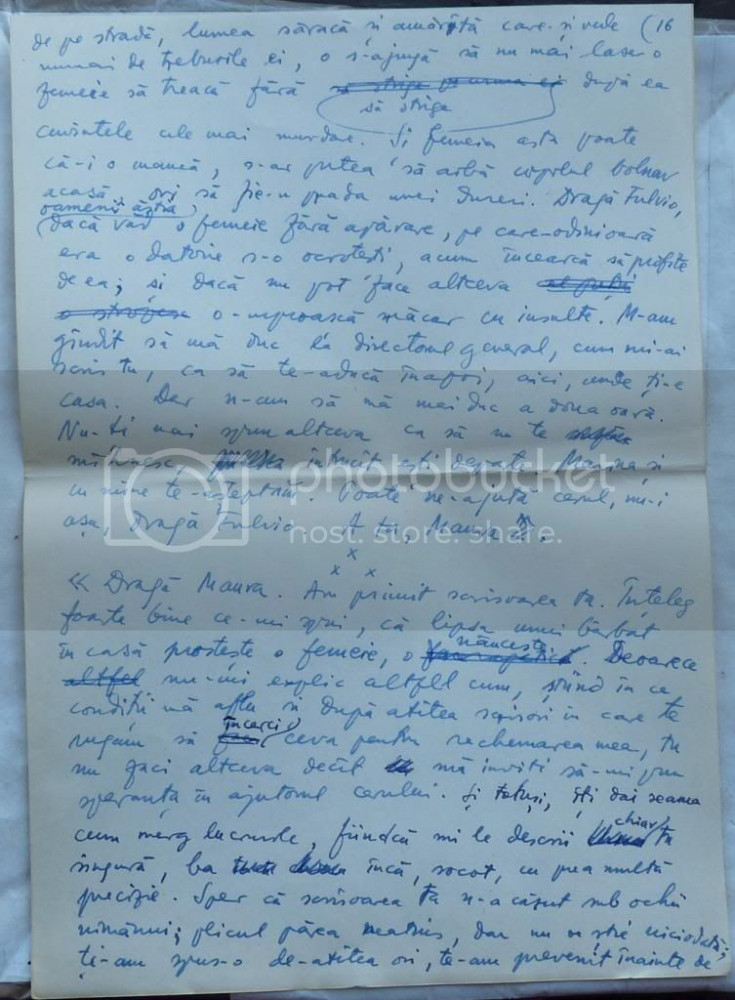 de pe stradă, lumea săracă și amărîtă care-și vede (16
numai de treburile ei, o s-ajungă să nu mai lase o
femeie să treacă fără să strige după ea
cuvintele cele mai murdare. Și femeia asta poate
că-i o mamă, s-ar putea să aibă copilul bolnav
acasă, ori să fie-n prada unei dureri. Dragă Fulvio,
oamenii ăștia,
dacă văd o femeie fără apărare, pe care-odinioară
era o datorie s-o ocrotești, acum încearcă să profite
de ea; și dacă nu pot face altceva
o-mproașcă măcar cu insulte. M-am
gîndit să mă duc la directorul general, cum mi-ai
scris tu, ca să te-aducă înapoi, aici, unde ți-e
casa. Dar n-am să mă mai duc a doua oară.
Nu-ți mai spun altceva ca să nu te
mîhnesc, întrucît ești departe. Marina și
cu mine te-așteptăm. Poate ne-ajută cerul, nu-i
așa, Dragă Fulvio. A ta, Maura.
x
x x
« Dragă Maura. Am primit scrisoarea ta. Înțeleg
foarte bine ce-mi spui, că lipsa unui bărbat
în casă prostește o femeie, o . Deoarece
nu-mi explic altfel cum, știind în ce
condiții mă aflu și după atîtea scrisori în care te
rugam să încerci ceva pentru rechemarea mea, tu
nu faci altceva decît mă inviți să-mi pun
speranța în ajutorul cerului. Și totuși, îți dai seama
cum merg lucrurile, fiindcă mi le descrii chiar tu
singură, ba încă, socot, cu prea multă
precizie. Sper că scrisoarea ta n-a căzut sub ochii
nimănui; plicul părea neatins, dar nu se știe niciodată;
ți-am spus-o de-atîtea ori, te-am prevenit înainte de
photobucket
host. store. share.